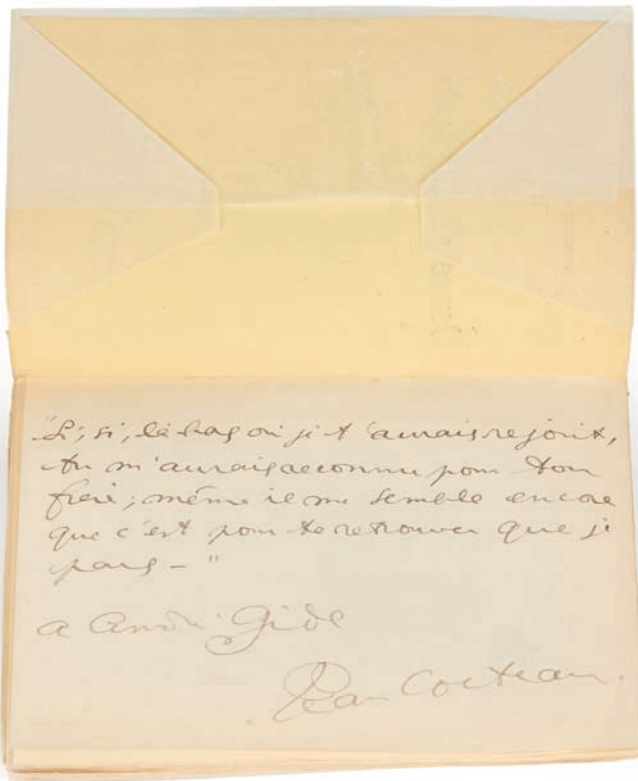 "Si, si, là-bas où je t'aurais rejoint,
tu m'aurais reconnu pour ton
frère ; même il me semble encore
que c'est pour te retrouver que je
pars – "
a André Gide
Jean Cocteau.